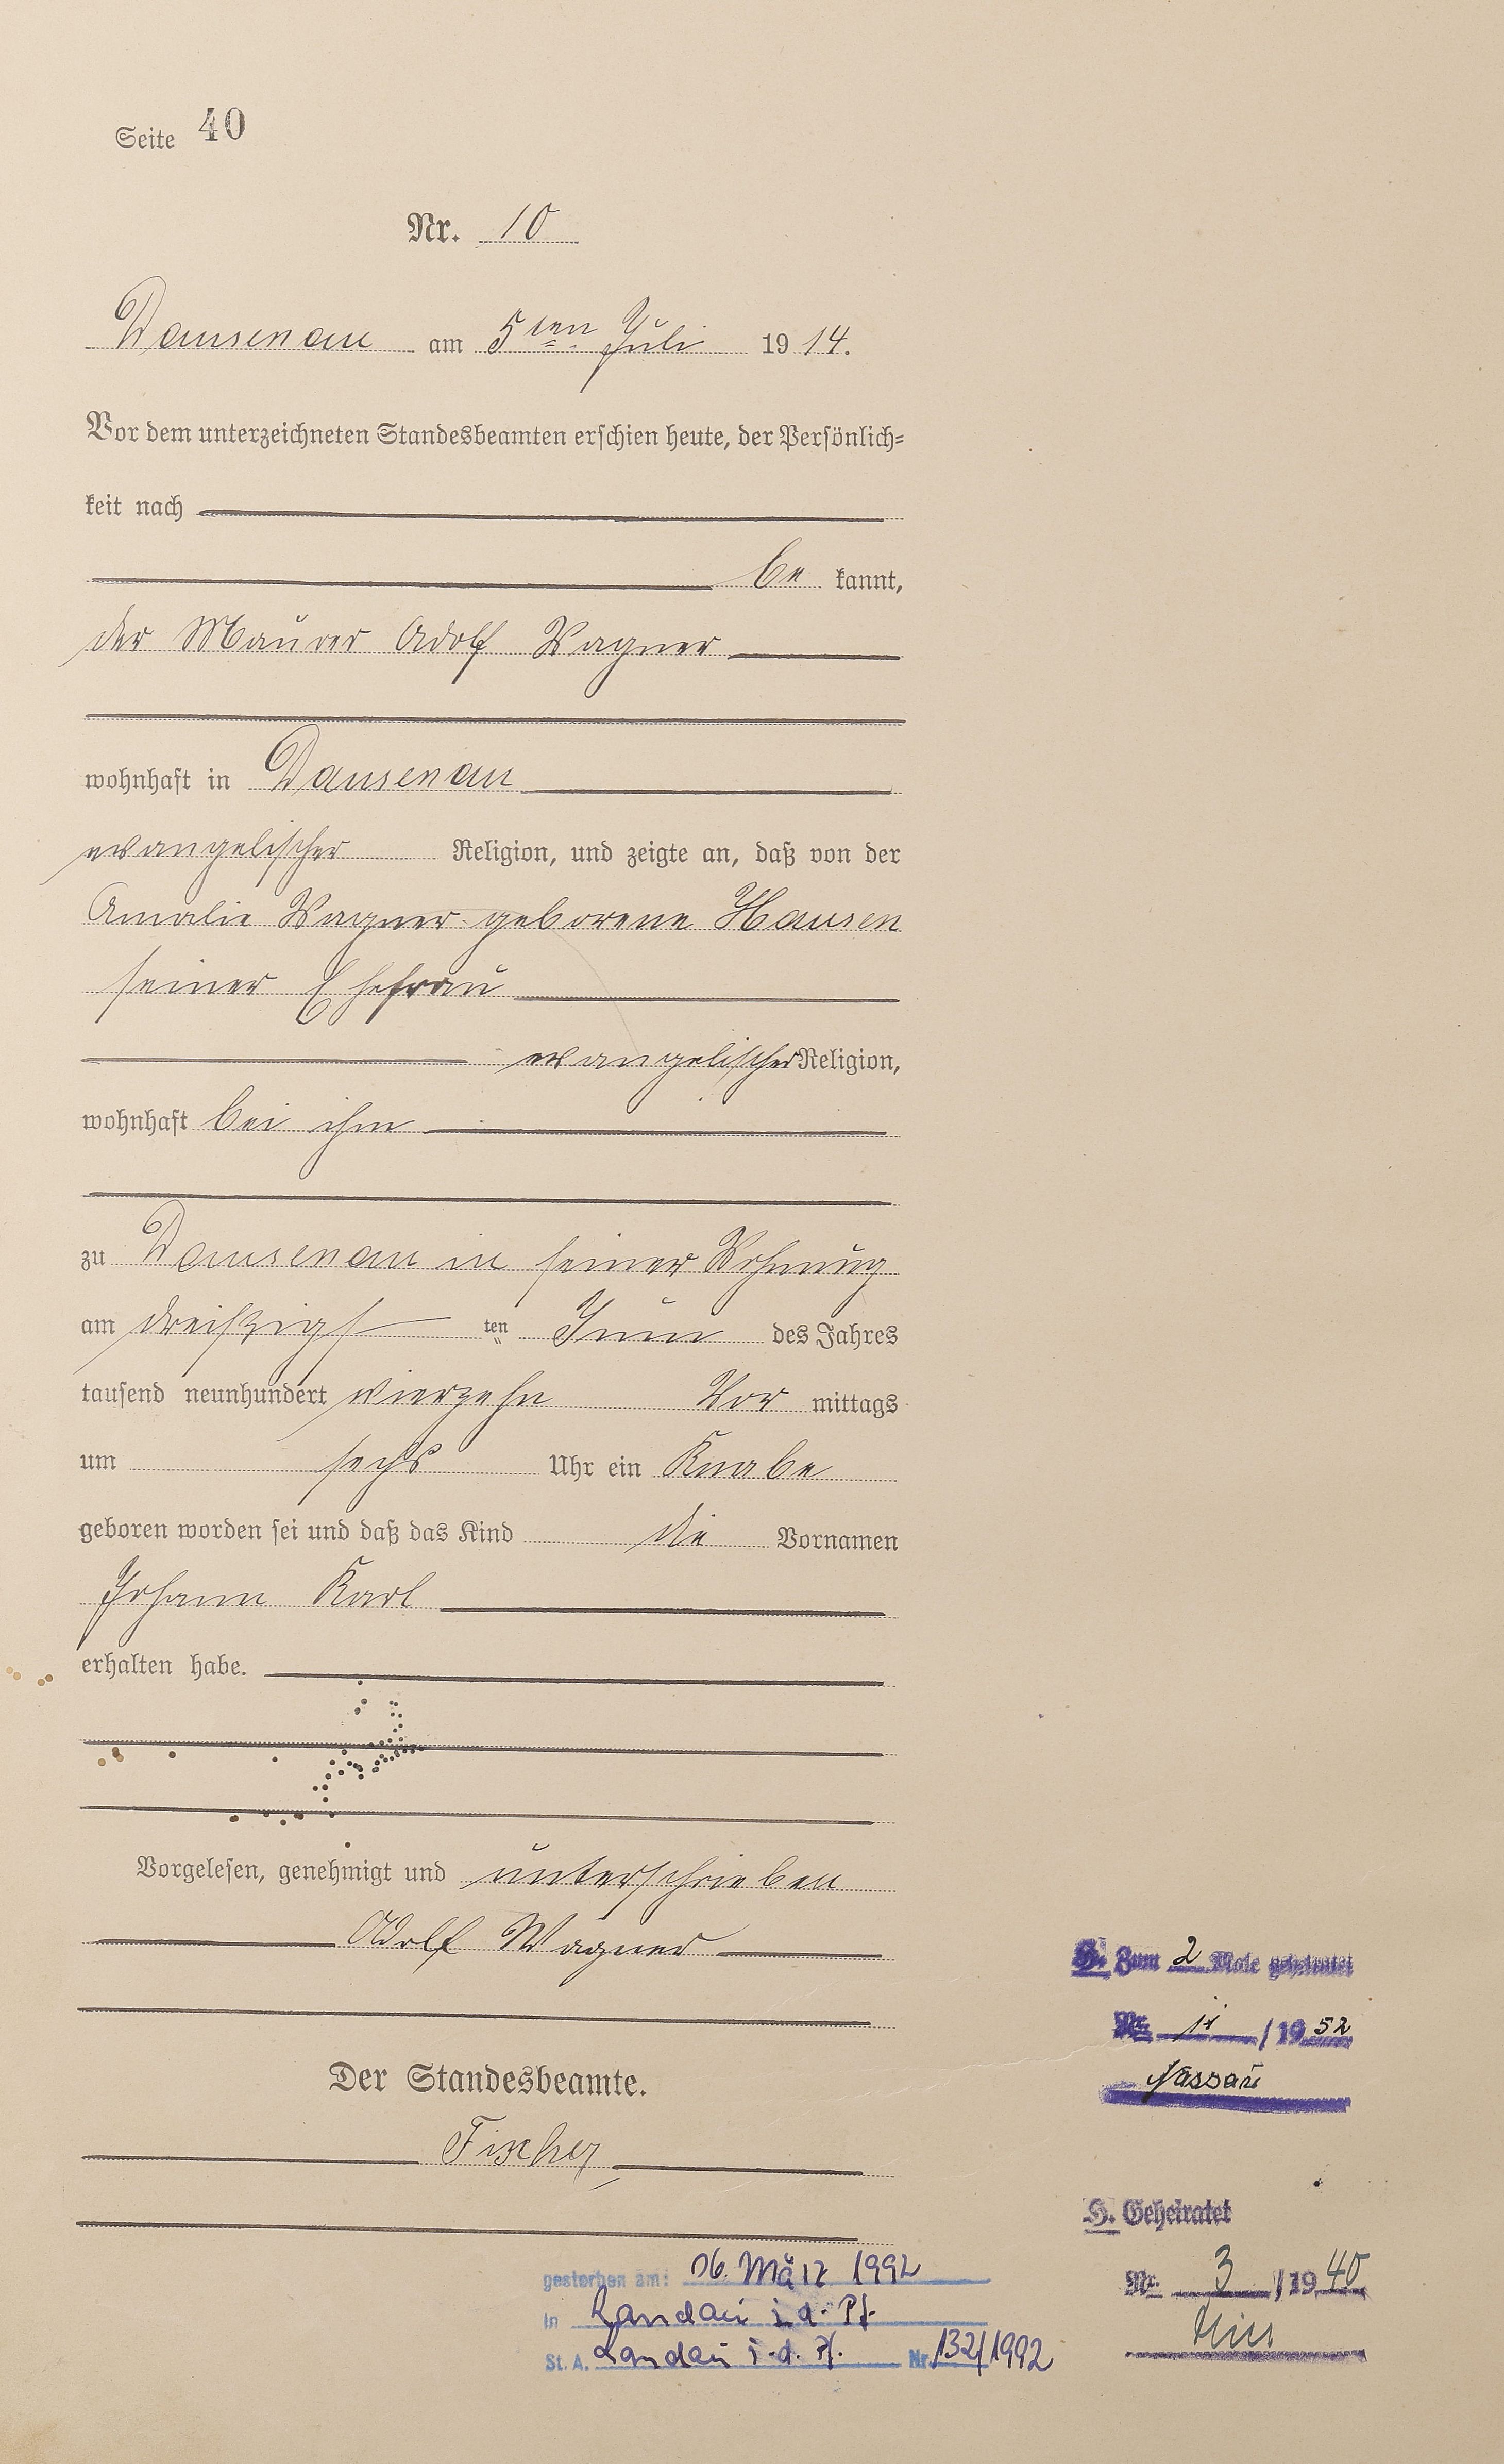 Seite 40
Nr. 10
Dausenau am 5ten Juli 1914.
Vor dem unterzeichneten Standesbeamten erschien heute, der Persönlich=
keit nach
be kannt,
der Maurer Adolf Wagner
wohnhaft in Dausenau
evangelischer Religion, und zeigte an, daß von der
Amalie Wagner geborene Hausen
seiner Ehefrau
evangelischer Religion,
wohnhaft bei ihm
zu Dausenau in seiner Wohnung
am dreißigsten Juni des Jahres
tausend neunhundert vierzehn Vor mittags
um sechs Uhr ein Knabe
geboren worden sei und daß das Kind die Vornamen
Johann Karl
erhalten habe.
Vorgelesen, genehmigt und unterschrieben
Adolf Wagner
Der Standesbeamte.
Fischer
H. Zum 2 Male geheiratet
Nr. /1952
Nassau
H. Geheiratet
Nr. 3 /1940
gestorben am: 06. März 1992
in Landau i. d. Pf.
St. A. Landau i. d. Pf. Nr. 132/1992